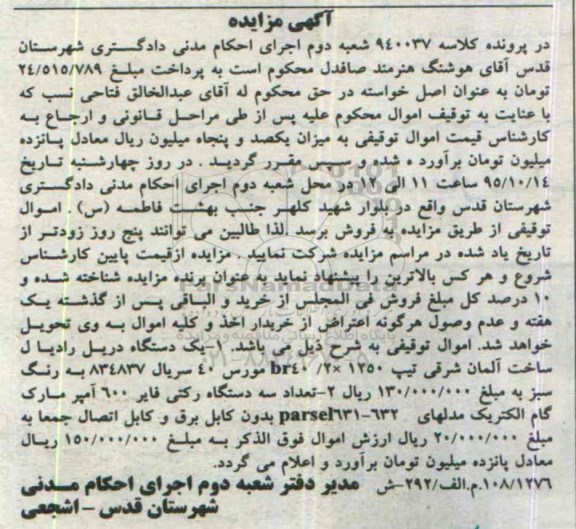 آگهی مزایده
در پرونده کلاسه ۹۴۰۰۳۷ شعبه دوم اجرای احکام مدنی دادگستری شهرستان
قدس آقای هوشنگ هنرمند صافدل محکوم است به پرداخت مبلغ ۲۴/۵۱۵/۷۸۹
تومان به عنوان اصل خواسته در حق محکوم له آقای عبدالخالق فتاحی نسب که
با عنایت به توقیف اموال محکوم علیه پس از طی مراحل قانونی و ارجاع به
کارشناس قیمت اموال توقیفی به میزان یکصد و پنجاه میلیون ریال معادل پانزده
میلیون تومان برآورد ه شده و سپس مقرر گردید . در روز چهارشنبه تاریخ
۹۵/۱۰/۱۴ ساعت ۱۱ الی ۱۲ در محل شعبه دوم اجرای احکام مدنی دادگستری
شهرستان قدس واقع در بلوار شهید کلهر جنب بهشت فاطمه (س) . اموال
توقیفی از طریق مزایده به فروش برسد .لذا طالبین می توانند پنج روز زودتر از
تاریخ یاد شده در مراسم مزایده شرکت نمایید . مزایده ازقیمت پایین کارشناس
شروع و هر کس بالاترین را پیشنهاد نماید به عنوان برنده مزایده شناخته شده و
۱۰ درصد کل مبلغ فروش فی المجلس از خرید و الباقی پس از گذشته یک
هفته و عدم وصول هرگونه اعتراض از خریدار اخذ و کلیه اموال به وی تحویل
خواهد شد. اموال توقیفی به شرح ذیل می باشد ۱-یک دستگاه دریل رادیا ل
ساخت آلمان شرقی تیپ ۱۲۵۰ ×۲/ br۴۰ مورس ۴۰ سریال ۸۳۴۸۳۷ به رنگ
سبز به مبلغ ۱۳۰/۰۰۰/۰۰۰ ریال ۲-تعداد سه دستگاه رکتی فایر ۶۰۰ آمپر مارک
گام الکتریک مدلهای parsel۶۳۱-۶۳۲ بدون کابل برق و کابل اتصال جمعا به
مبلغ ۲۰/۰۰۰/۰۰۰ ریال ارزش اموال فوق الذکر به مبلغ ۱۵۰/۰۰۰/۰۰۰ ریال
معادل پانزده میلیون تومان برآورد و اعلام می گردد.
۱۰۸/۱۲۷۶.م.الف/۲۹۲-ش مدیر دفتر شعبه دوم اجرای احکام مدنی
شهرستان قدس - اشجعی
ParsNamadData